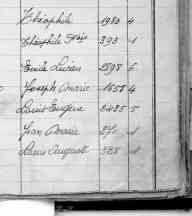 Théophile 1930 4
Théophile Frs 393 1
Emile Lucien 1898 5
Joseph Marie 1658 4
Louis Eugène 2485 5
Jean Marie
Louis August 388 1